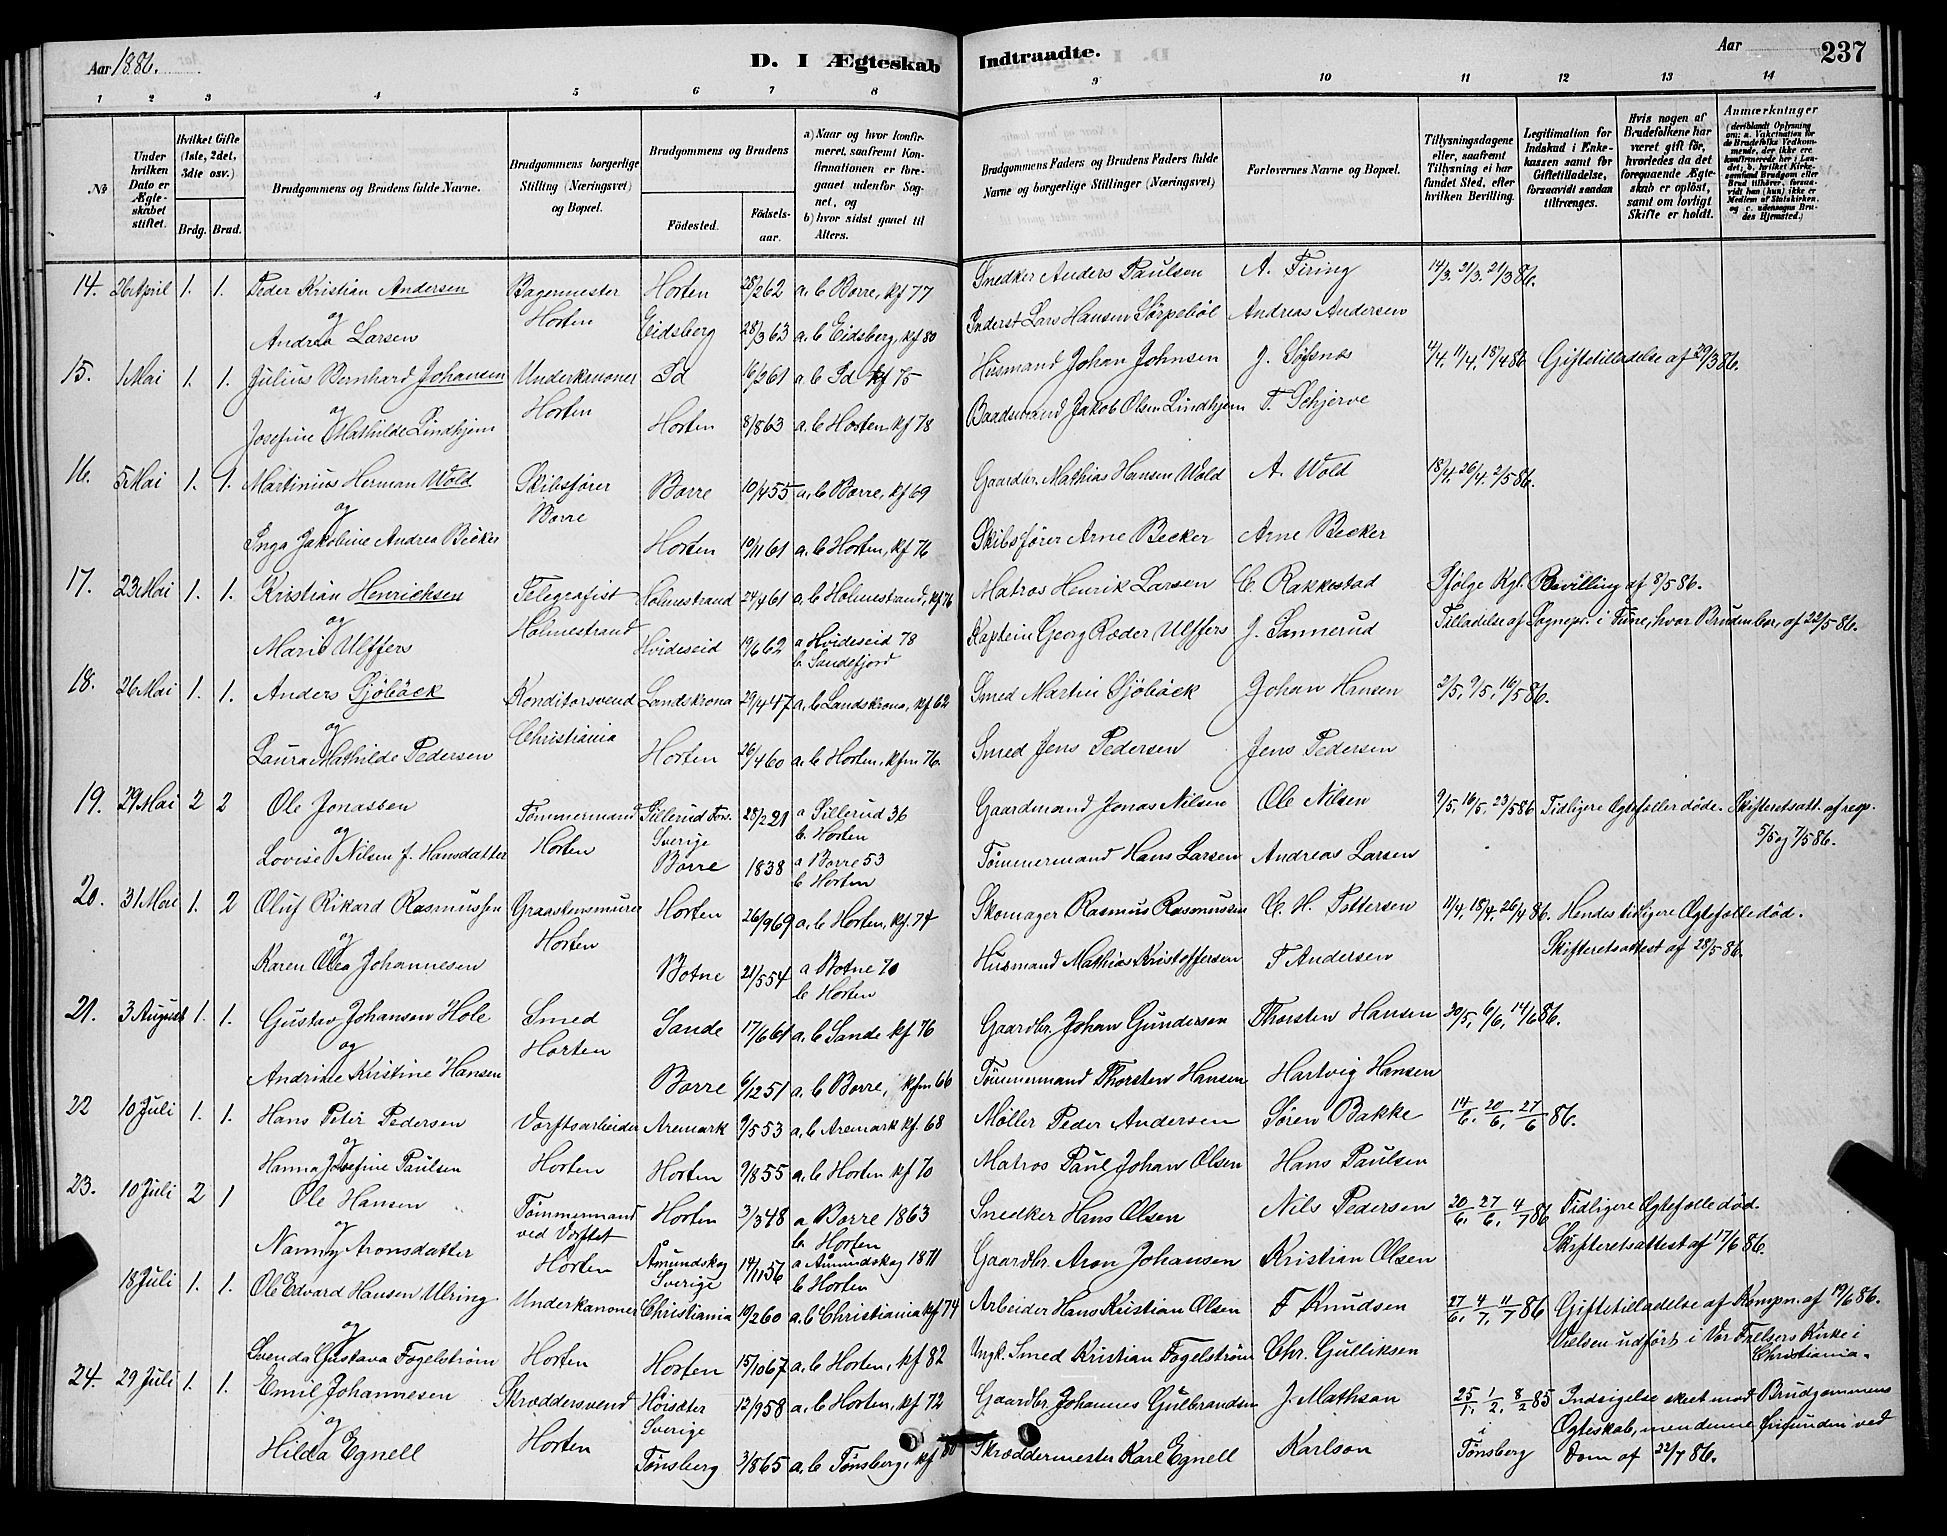 Aar 1886.
D. I Ægteskab Indtraadte.
Aar
237
1 2 3 4 5 6 7 8 9 10 11 12 13 14
No
Under hvilken Dato er Ægteskabet stiftet.
Hvilket Gifte (1ste, 2det, 3dte osv.)
Brdg. Brud.
Brudgommens og Brudens fulde Navne.
Brudgommens borgerlige Stilling (Næringsvei) og Bopæl.
Brudgommens og Brudens
Fødested. Fødselsaar.
a) Naar og hvor konfirmeret, saafremt Konfirmationen er foregaaet udenfor Sognet, og
b) hvor sidst gaaet til Alters.
Brudgommens Faders og Brudens Faders fulde Navne og borgerlige Stillinger (Næringsvei)
Forlovernes Navne og Bopæl.
Tillysningsdagene eller, saafremt Tillysning ei har fundet Sted, efter hvilken Bevilling.
Legitimation for Indskud i Enkekassen samt for Giftetilladelse, forsaavidt saadan tiltrænges.
Hvis nogen af Brudefolkene har været gift før, hvorledes da det foregaaende Ægteskab er opløst, samt om lovligt Skifte er holdt.
Anmærkninger (deriblandt Oplysning om: a. Vakcination for de Brudefolks Vedkommende, der ikke ere konfirmerede her i Landet; b. hvilket Kirkesamfund Brudgom eller Brud tilhører, forsaavidt han (hun) ikke er Medlem af Statskirken. og c. udensogns Brudes Hjemsted.)
14. 26 April 1. 1. Peder Kristian Andersen Bagermester Horten 28/2 62 a. b Borre, kf 77 Snedker Anders Paulsen A. Firing 14/3. 21/3. 21/3 86.
og Horten
Andrea Larsen Eidsberg 28/3 63 a. b Eidsberg, kf 80 Inderst Lars Hansen Sørpebøl Andreas Andersen
15. 1 Mai 1. 1. Julius Bernhard Johansen Underkanoner Id 16/9 61 a. b Id kf 75 Husmand Johan Johnsen J. Søfsnæs 4/4. 11/4. 18/4 86 Giftetilladelse af 29/3 86.
og Horten
Josefine Mathilde Lindhjem Horten 8/8 63 a. b Horten kf 78 Baadsmand Jakob Olsen Lindhjem T. Schjerve
16. 5 Mai 1. 1. Martinius Herman Wold Skibsfører Borre 10/4 55 a. b Borre, kf 69 Gaardbr. Mathias Hansen Wold A. Wold 18/4. 26/4. 2/5 86.
og Borre
Inga Jakobine Andrea Becker Horten 19/11 61 a. b Horten, kf 76 Skibsfører Arne Becker Arne Becker
17. 23 Mai 1. 1. Kristian Henrichsen Telegrafist Holmestrand 24/4 61 a. b Holmestrand, kf 76 Matros Henrik Larsen C. Rakkestad Ifølge Kgl. Bevilling af 8/5 86.
og Holmestrand
Marie Ulffers Hvideseid 19/6 62 a Hvideseid 78 Kaptein Georg Ræder Ulffers J. Sannerud Tilladelse af Sognepr. i Tune, hvor Bruden bor, af 22/5 86.
b. Sandefjord
18. 26 Mai 1. 1. Anders Sjöbäck Konditorsvend Landskrona 29/4 47 a. b Landskrona, kf 62 Smed Martin Sjöbäck Johan Hansen 2/5, 9/5, 16/5 86.
og Christiania
Laura Mathilde Pedersen Horten 26/4 60 a. b Horten, kfm 76. Smed Jens Pedersen Jens Pedersen
19. 29 Mai 2 2 Ole Jonassen Tømmermand Sillerud Fors. 28/2 21 a Sillerud 36 Gaardmand Jonas Nilsen Ole Nilsen 9/5. 16/5. 23/5 86 Tidligere Ægtefæller døde. Skifteretsatt. af resp.
og Horten Sverige b. Horten 5/5 og 7/5 86.
Lovise Nilsen f. Hansdatter Borre 1838 a Borre 53 Tømmermand Hans Larsen Andreas Larsen
b Horten
20. 31 Mai 1. 2 Oluf Rikard Rasmussen Graastensmurer Horten 26/9 69 a. b Horten, kf. 74 Skomager Rasmus Rasmussen C. H. Pettersen 11/4, 18/4, 26/4 86. Hendes tidligere Ægtefælle død.
og Horten Skifteretsattest af 28/5 86.
Karen Olea Johannesen Botne 21/5 54 a Botne 70 Husmand Mathias Kristoffersen F Andersen
b Horten
21. 3 August 1. 1. Gustav Johansen Hole Smed Sande 17/6 61 a. b Sande kf 76 Gaardbr. Johan Gundersen Thorsten Hansen 30/5, 6/6, 14/6 86.
og Horten
Andrine Kristine Hansen Borre 6/12 51 a. b Borre, kfm 66 Tømmermand Thorsten Hansen Hartvig Hansen
22 10 Juli 1. 1. Hans Peter Pedersen Værftsarbeider Aremark 9/5 53 a. b Aremark kf. 68 Møller Peder Andersen Søren Bakke 14/6. 20/6, 27/6 86.
og
Hanna Josefine Paulsen Horten Horten 9/8 55 a. b Horten kf 70 Matros Paul Johan Olsen Hans Paulsen
23. 10 Juli 2 1 Ole Hansen Tømmermand Horten 3/3 48 a Borre 1863 Snedker Hans Olsen Nils Pedersen 20/6, 27/6, 4/7 86 Tidligere Ægtefælle død.
og ved Værftet b. Horten Skifteretsattest af 17/6 86.
Nanny Aronsdatter Horten Åmundskog 14/11 56 a Åmundskog 1871 Gaardbr. Aron Johansen Kristian Olsen
Sverige b Horten
18 Juli 1. 1. Ole Edvard Hansen Ulring Underkanoner Christiania 10/2 60 a. b Christiania kf 74 Arbeider Hans Kristian Olsen F Knudsen 27/6, 4/7, 11/7 86 Giftetilladelse af Kompn. af 19/6 86.
og Vielsen udført i Vor Frelsers Kirke i Christiania.
Svenda Gustava Fogelstrøm Horten Horten 15/10 67 a. b Horten, kf 82 Ungk. Smed Kristian Fogelstrøm Chr. Gulliksen
24. 29 Juli 1. 1. Emil Johannesen Skræddersvend Høisæter 12/7 58 a. b Horten, kf 72 Gaardbr. Johannes Gulbrandsen J. Mathson 25/1, 1/2, 8/2 85 Indsigelse skeet mod Brudgommens
og Sverige i Ægteskab, men denne frifunden ved
Hilda Egnell Horten Tønsberg 3/8 65 a. b Tønsberg, kf 80 Skræddermester Karl Egnell Karlson Tønsberg Dom af 22/7 86.